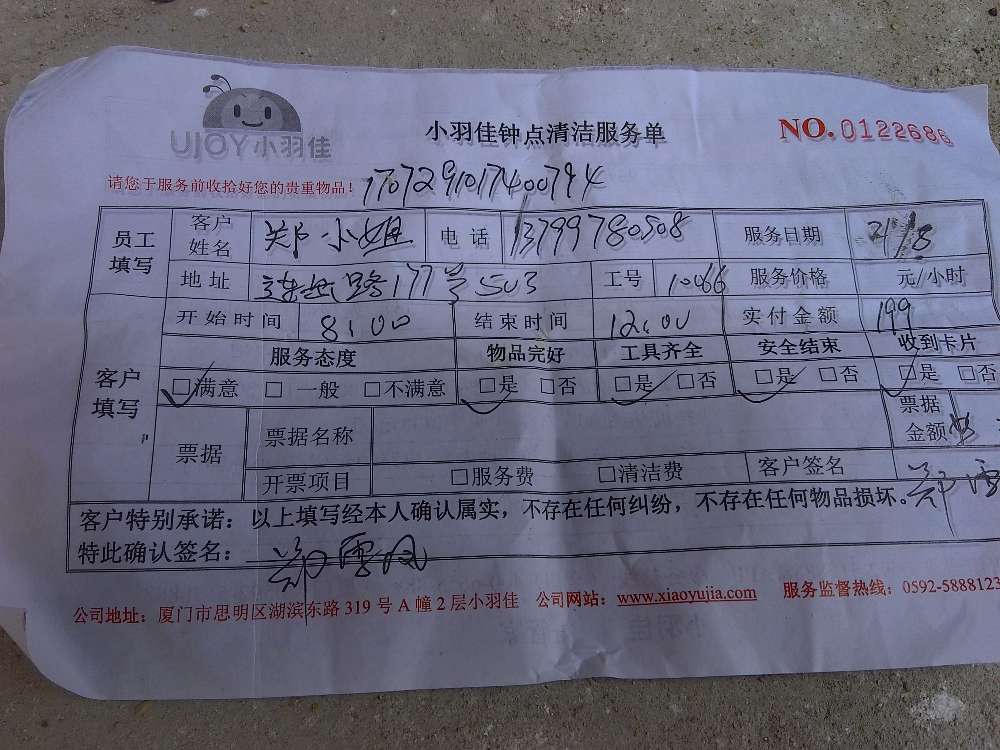 UJOY小羽佳
小羽佳钟点清洁服务单
NO.0122686
请您于服务前收拾好您的贵重物品！
1707291017400794
员工填写 客户姓名 郑小姐 电话 13799780508 服务日期
地址 莲岳路177号503 工号 10066 服务价格 元/小时
客户填写 开始时间 8:00 结束时间 12:00 实付金额 199
服务态度 物品完好 工具齐全 安全结束 收到卡片
□满意 □一般 □不满意 □是 □否 □是 □否 □是 □否 □是 □否
票据 票据名称 票据金额
开票项目 □服务费 □清洁费 客户签名
客户特别承诺：以上填写经本人确认属实，不存在任何纠纷，不存在任何物品损坏。
特此确认签名：
公司地址：厦门市思明区湖滨东路319号A幢2层小羽佳 公司网站：www.xiaoyujia.com 服务监督热线：0592-5888123